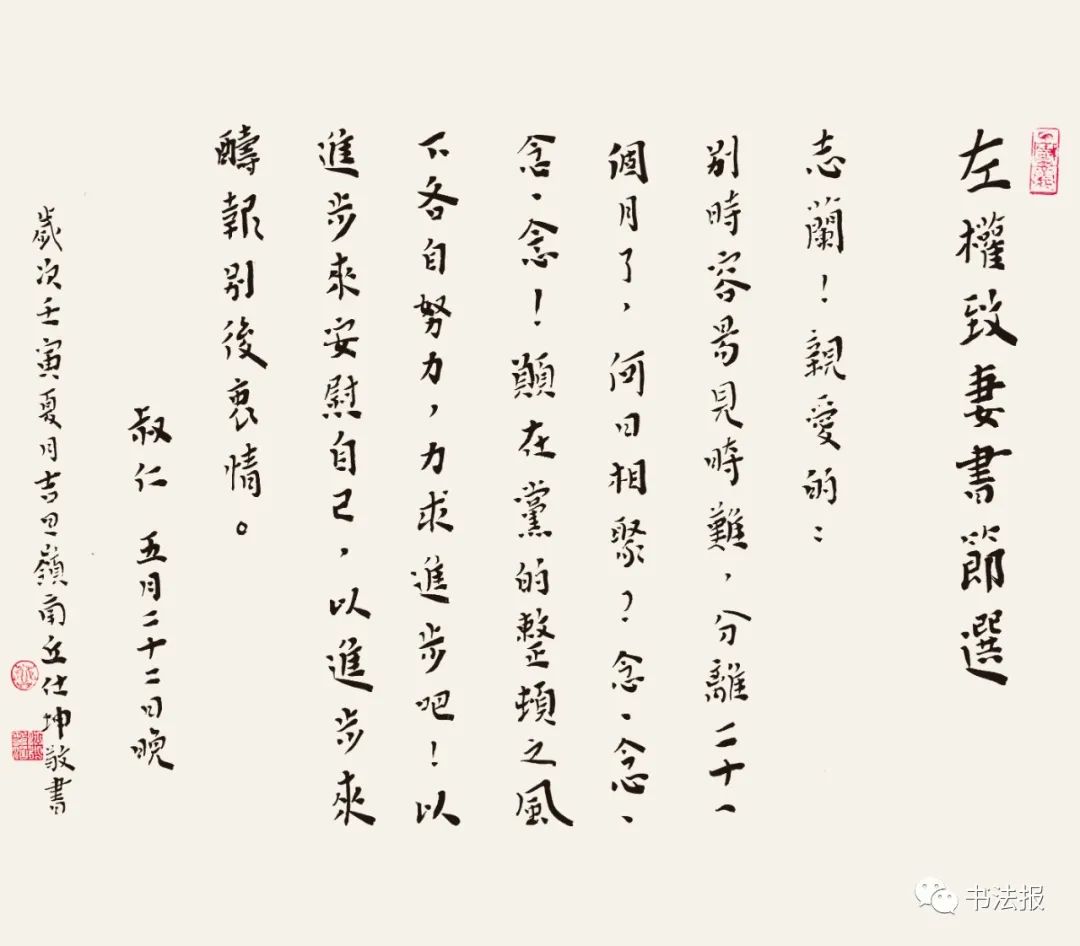 左權致妻書節選
志蘭！親愛的：
別時容易見時難，分離二十一
個月了，何日相聚？念、念、
念、念！願在黨的整頓之風
下各自努力，力求進步吧！以
進步來安慰自己，以進步來
酬報別後衷情。
叔仁 五月二十二日晚
歲次壬寅夏月吉旦嶺南丘仕坤敬書
书法报